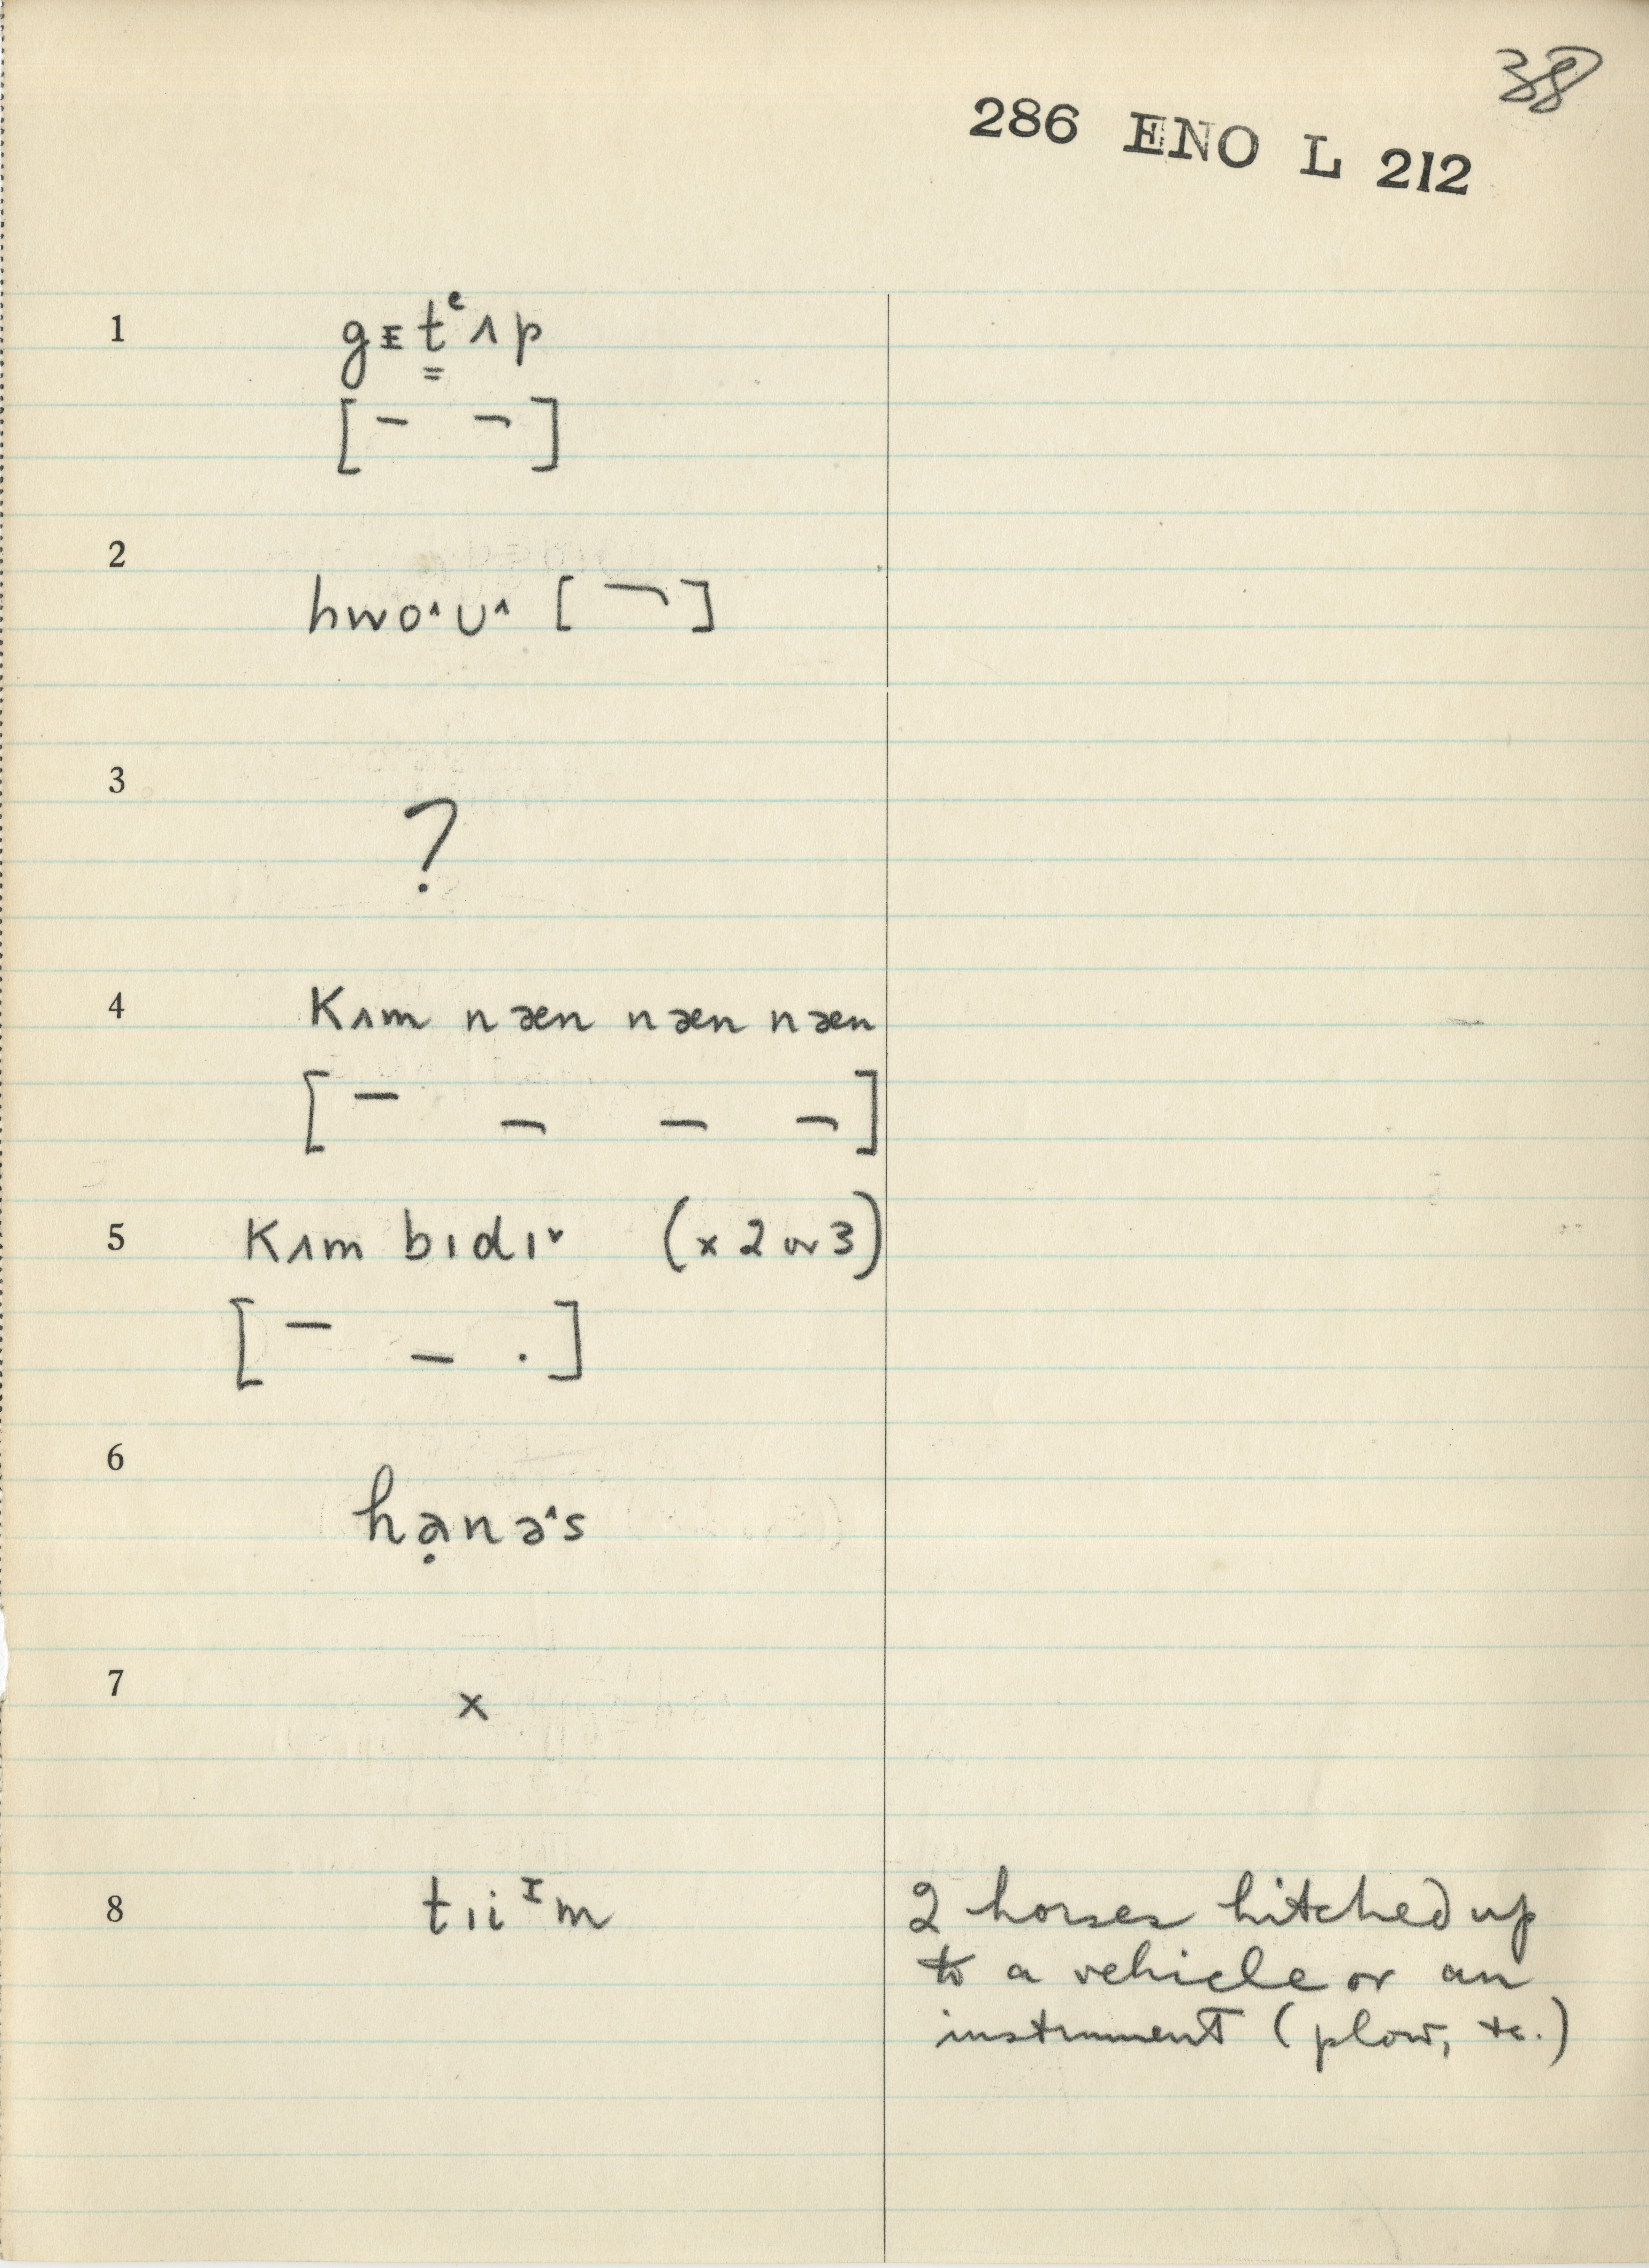 38
286 ENO L 212
1 gᵻt̳ᵉʌp
[ – ¬ ]
2 hwo˄ʊ˄ [ ¬ ]
3 ?
4 Kʌm næn næn næn
[ – ¬ – ¬ ]
5 Kʌm bɪdɪ˅ (x 2 or 3)
[ – – · ]
6 hə̣nə˄s
7 x
8 tɪiᴵm 2 horses hitched up
to a vehicle or an
instrument (plow, etc.)